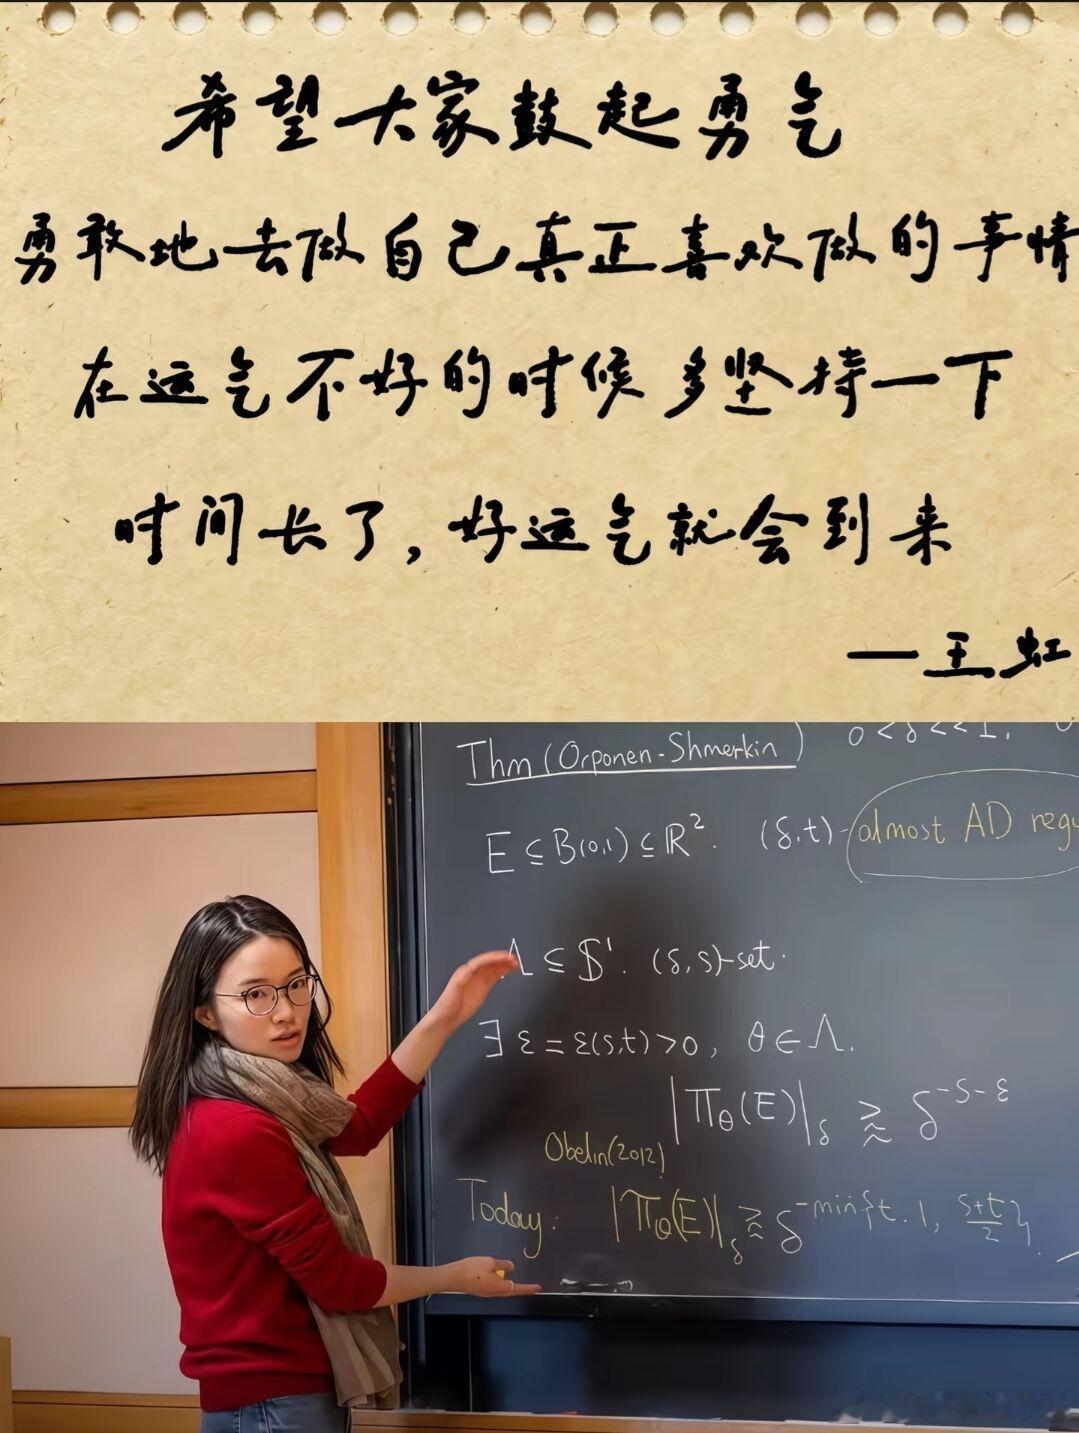 希望大家鼓起勇气
勇敢地去做自己真正喜欢做的事情
在运气不好的时候多坚持一下
时间长了,好运气就会到来
—王虹
Thm (Orponen-Shmerkin) 0<δ<<1,
E ⊆ B(0,1) ⊆ ℝ². (δ,t)-almost AD regu
Λ ⊆ S¹. (δ,s)-set.
∃ ε = ε(s,t) > 0, θ ∈ Λ.
|Πθ(E)|δ ⪆ δ^-s-ε
Obelin(2012)
Today: |Πθ(E)|δ ⪆ δ^-min{t,1,(s+t)/2}.